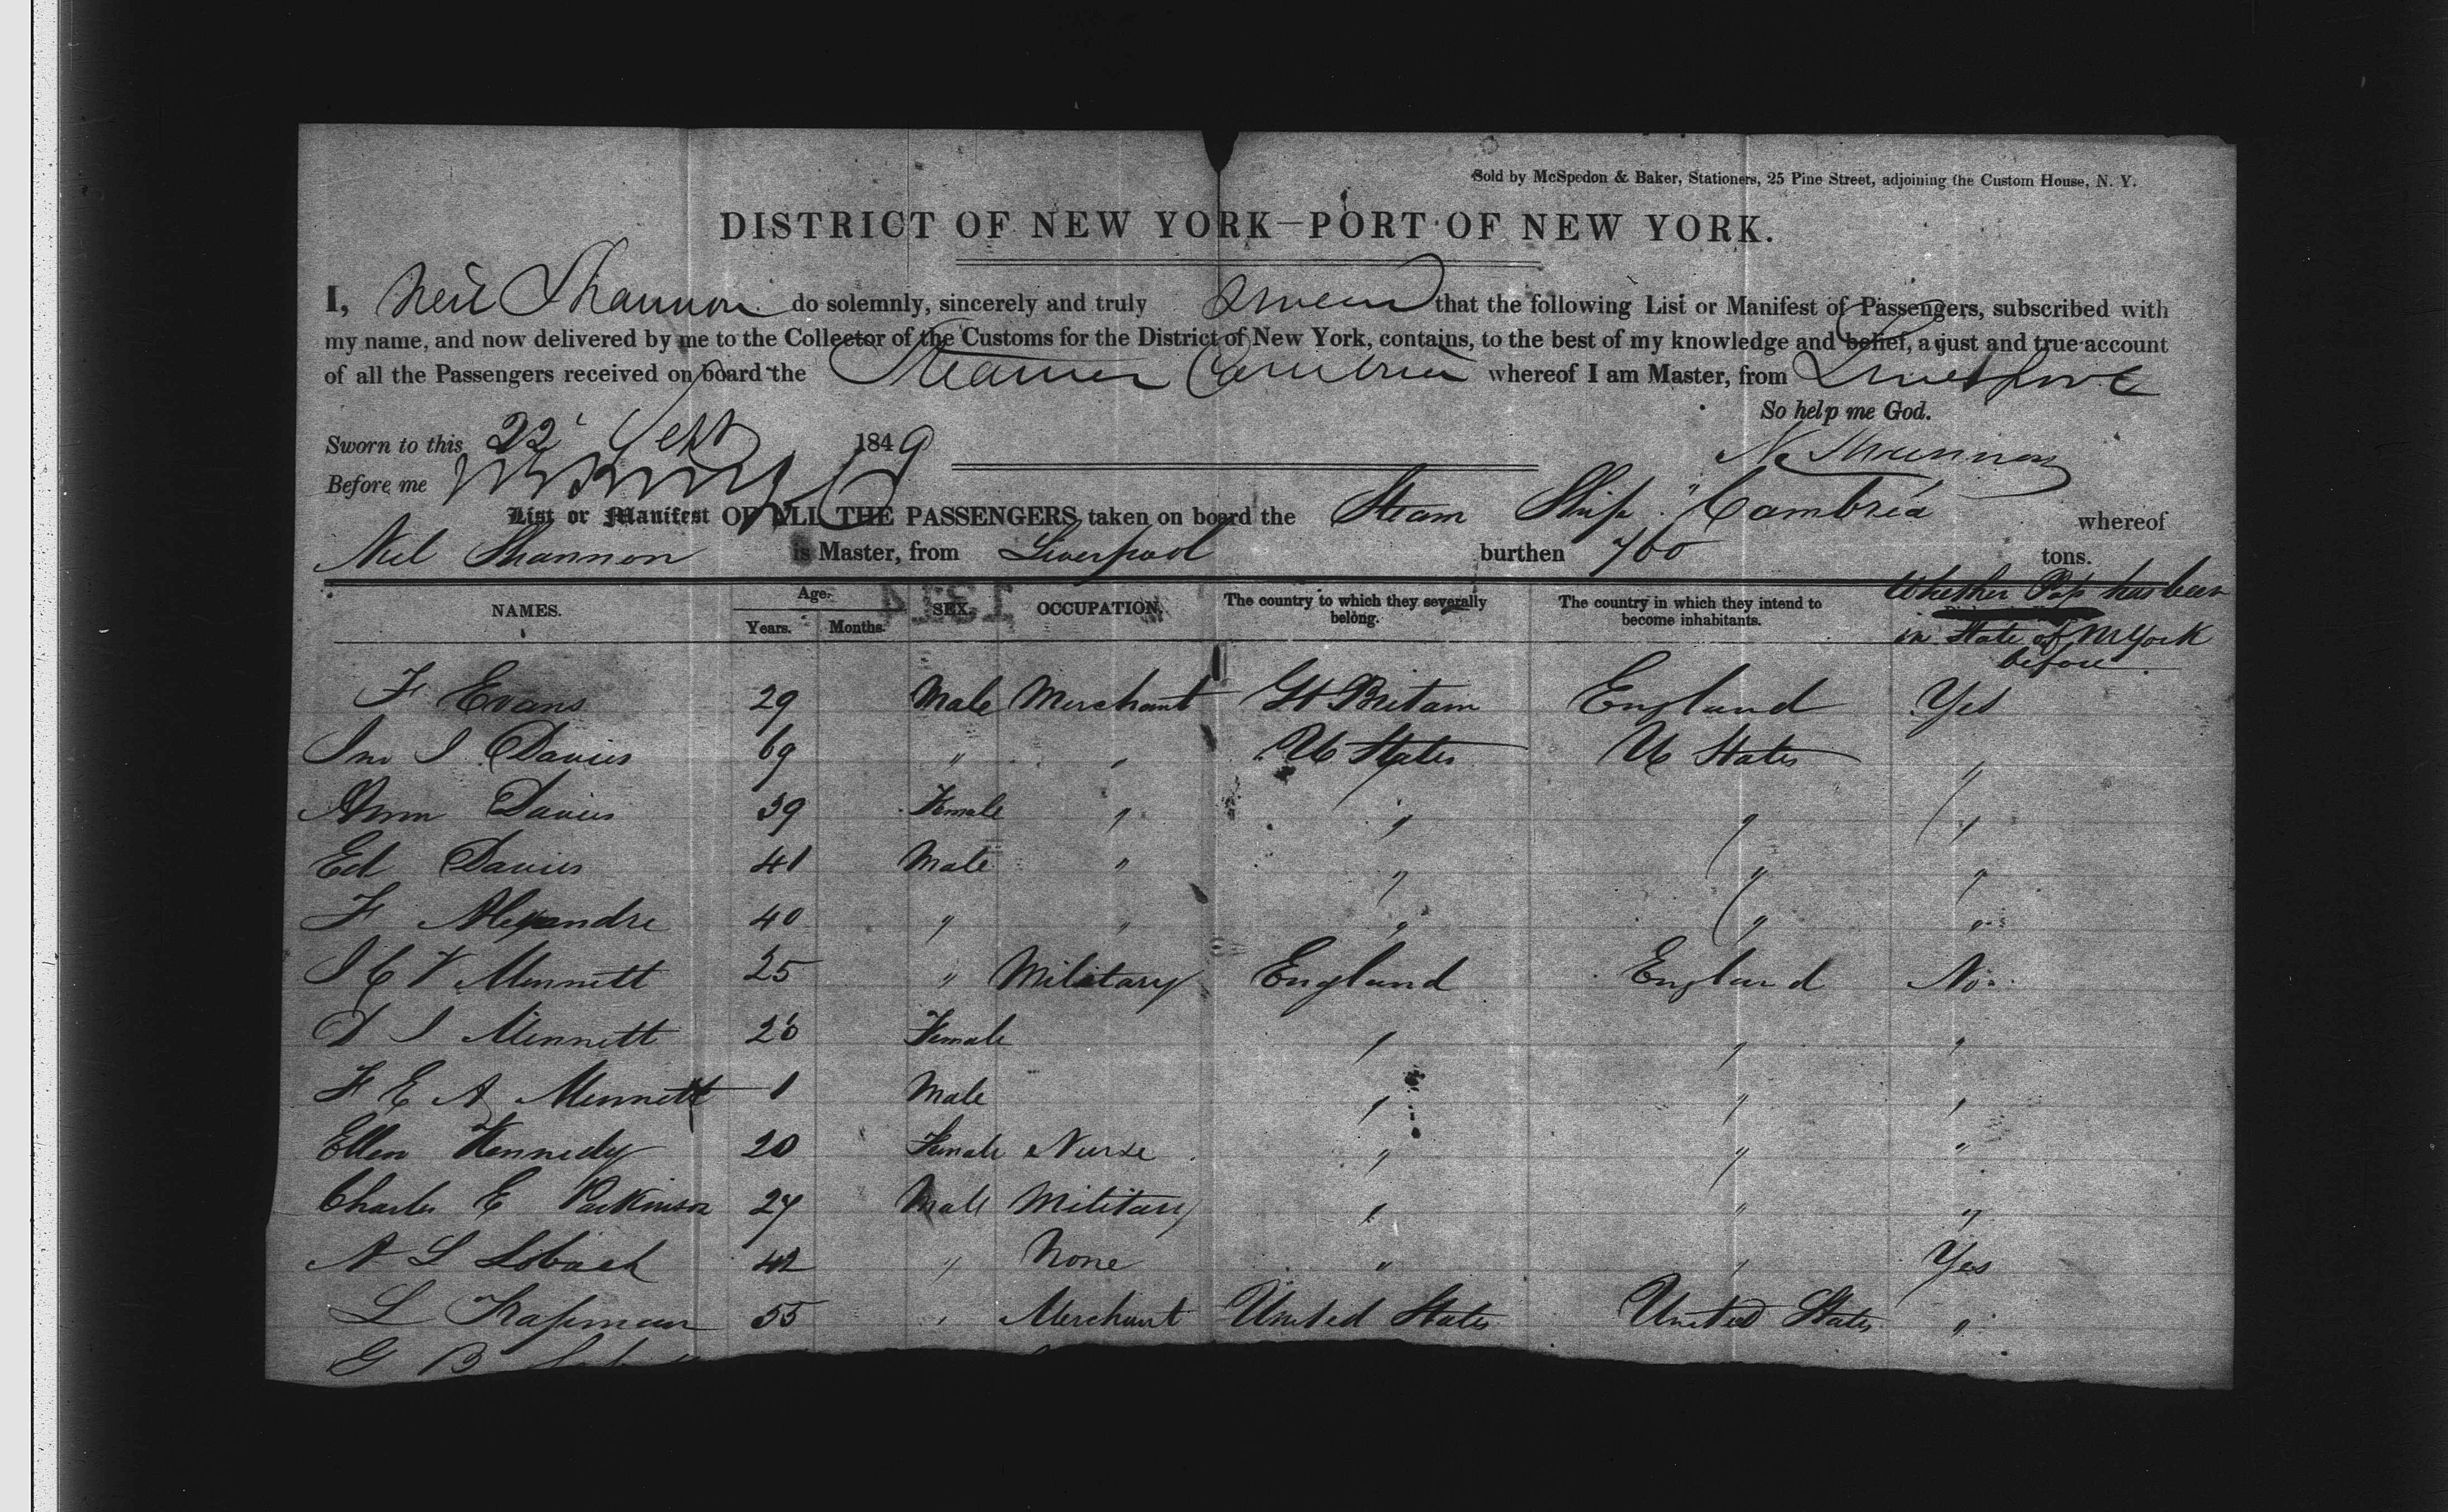 Sold by McSpedon & Baker, Stationers, 25 Pine Street, adjoining the Custom House, N. Y.
DISTRICT OF NEW YORK—PORT OF NEW YORK.
I, Neil Shannon do solemnly, sincerely and truly swear that the following List or Manifest of Passengers, subscribed with
my name, and now delivered by me to the Collector of the Customs for the District of New York, contains, to the best of my knowledge and belief, a just and true account
of all the Passengers received on board the Steamer Cambria whereof I am Master, from Liverpool
So help me God.
Sworn to this 22 Sept 1849
N. Shannon
Before me
List or Manifest OF ALL THE PASSENGERS taken on board the Steam Ship "Cambria whereof
Neil Shannon is Master, from Liverpool burthen 760 tons.
NAMES. Age. Years. Months. SEX. OCCUPATION. The country to which they severally belong. The country in which they intend to become inhabitants. Whether Psgr has been in State of N York before
F Evans 29 Male Merchant Gt Britain England Yes
Jno J Davies 69 " " U States U States "
Ann Davies 39 Female " " " "
Ed Davies 41 Male " " " "
F Alexandre 40 " " " " "
J C V Mennett 25 " Military England England No.
D J Mennett 26 Female " " "
F E A Mennett 1 Male " " "
Ellen Kennedy 20 Female Nurse " " "
Charles E Parkinson 27 Male Military " " "
A L Lobach 42 " None " " Yes
L Trapmann 55 " Merchant United States United States "
G B